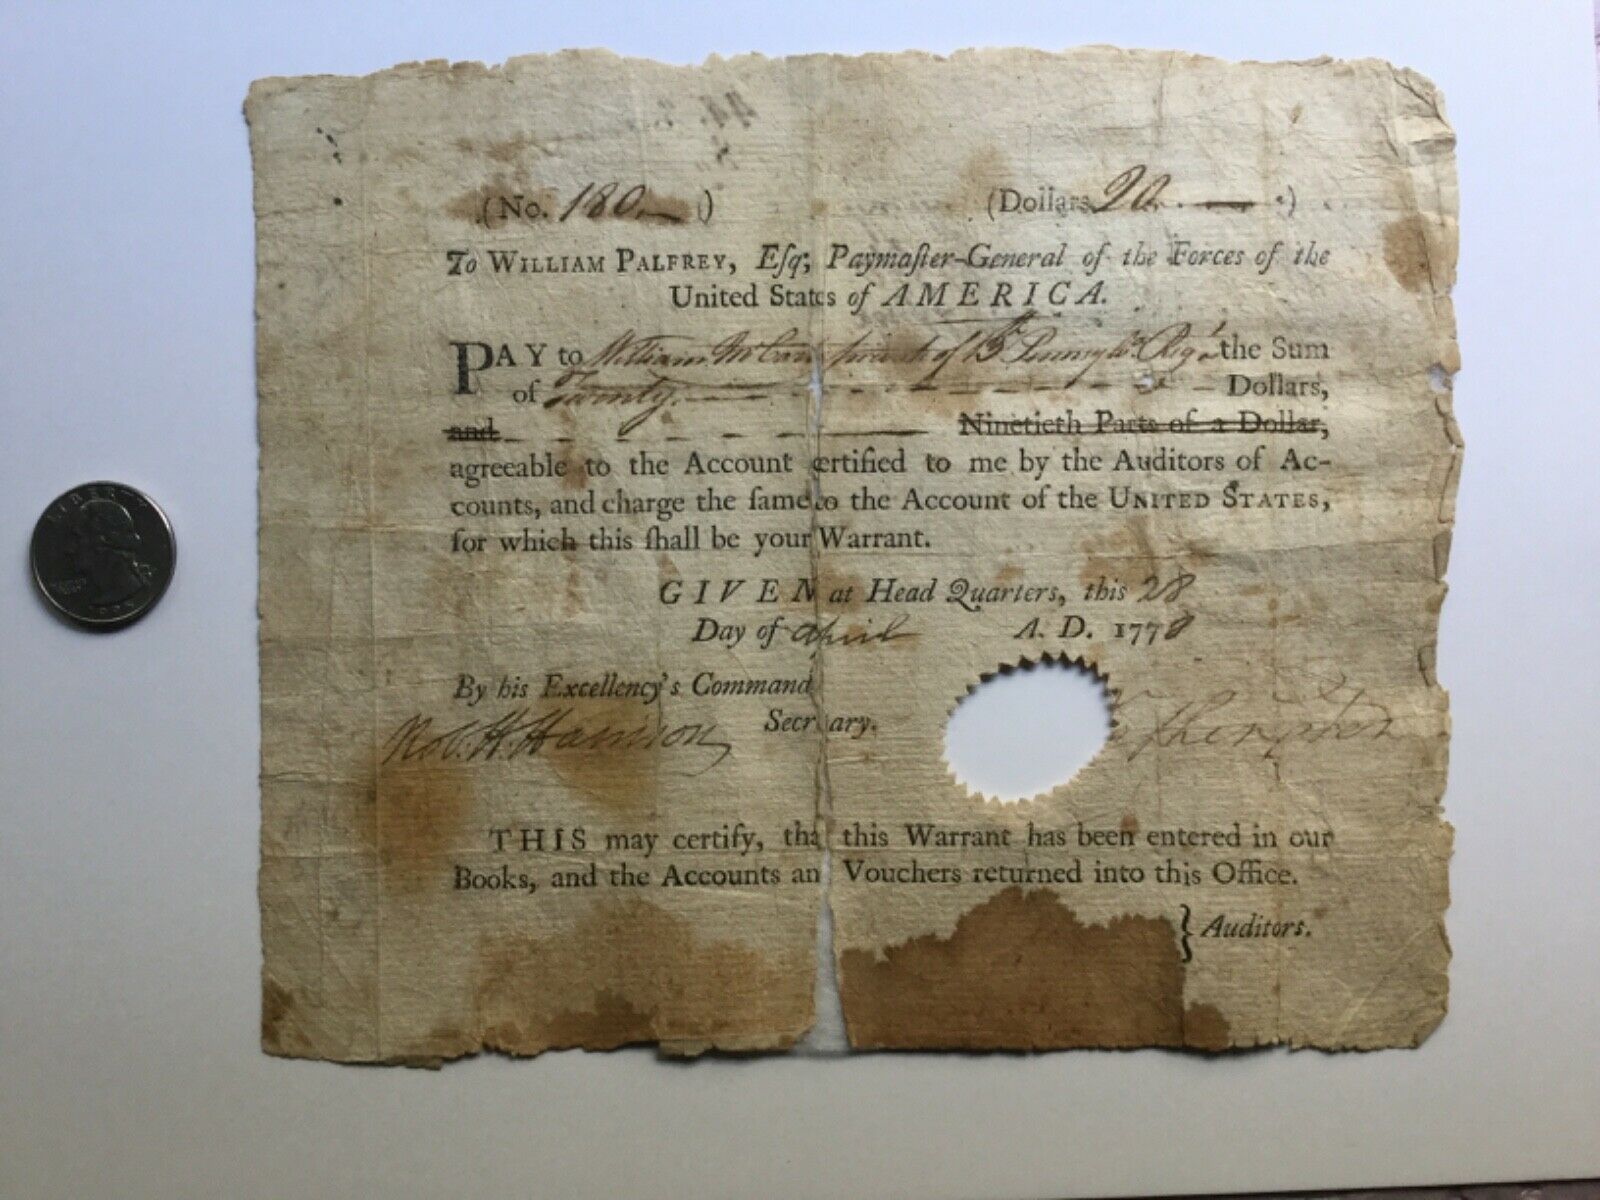 (No. 180.—)
(Dollars 20. — .)
To WILLIAM PALFREY, Eſq; Paymaſter-General of the Forces of the
United States of AMERICA.
PAY to William McCan of Pennsyla. Regt. the Sum
of Twenty. — — — — — Dollars,
and — — — — Ninetieth Parts of a Dollar,
agreeable to the Account certified to me by the Auditors of Ac-
counts, and charge the ſame to the Account of the UNITED STATES,
for which this ſhall be your Warrant.
GIVEN at Head Quarters, this 28
Day of April A. D. 1778
By his Excellency's Command
Rob. H. Harrison Secretary.
THIS may certify, tha this Warrant has been entered in our
Books, and the Accounts an Vouchers returned into this Office.
} Auditors.
LIBERTY